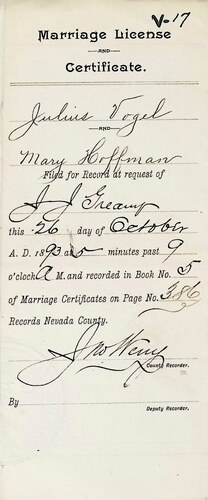 V-17
Marriage License
AND
Certificate.
Julius Vogel
AND
Mary Hoffman
Filed for Record at request of
this 26 day of October
A. D. 1893 at 5 minutes past 9
o'clock A M. and recorded in Book No. 5
of Marriage Certificates on Page No. 386
Records Nevada County.
County Recorder.
By
Deputy Recorder.